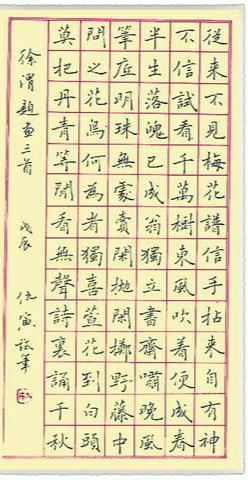 從來不見梅花譜信手拈來自有神
不信試看千萬樹東風吹着便成春
半生落魄已成翁獨立書齋嘯晚風
筆底明珠無處賣閑拋閑擲野藤中
問之花鳥何為者獨喜萱花到白頭
莫把丹青等閒看無聲詩裏誦千秋
徐渭題画三首 戊辰 仇寅試筆